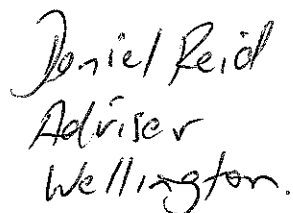 Daniel Reid
Adviser
Wellington.